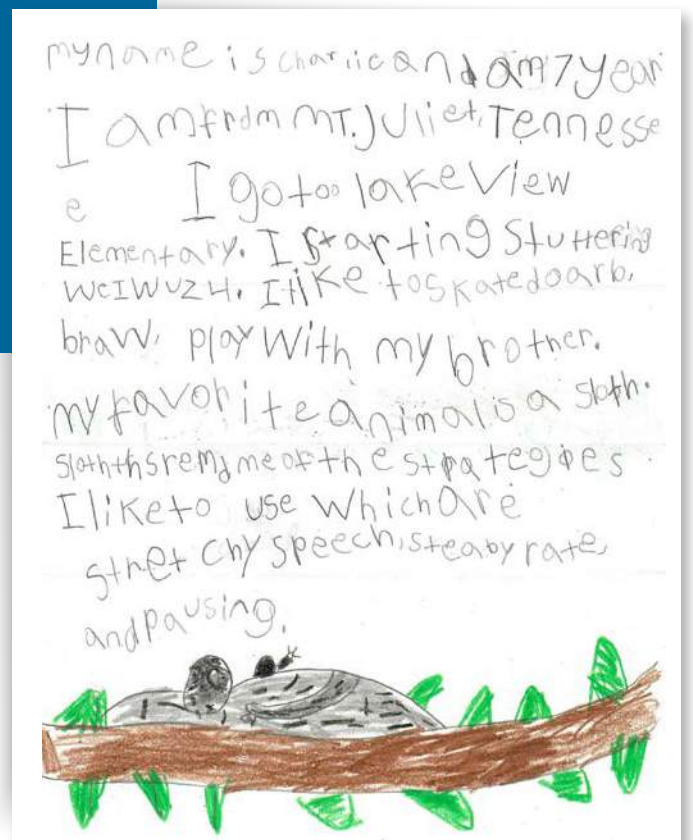 my name is charlie and am 7 year
I am from MT. Juliet, Tennesse
e I go too lake View
Elementary. I starting Stuttering
WeIWUZ4. I like to skatedoarb,
braw, play With my brother.
my favorite animal is a sloth.
Sloththsremdme of the strategies
I like to use which are
stretchy speech, steaby rate,
and pausing.